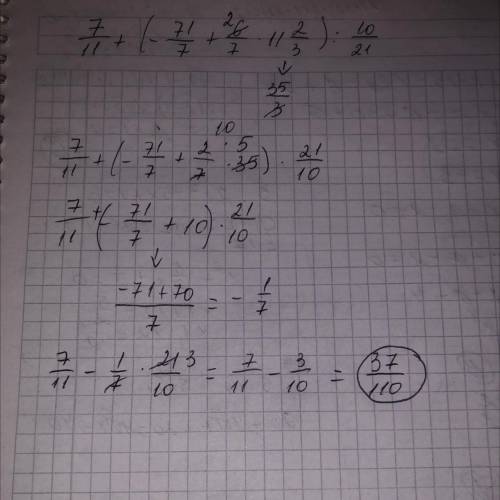 7/11 + (- 71/7 + 2 6/7 · 11 2/3) : 10/21
↓
35/3
10
7/11 + (- 71/7 + 2/7 · 35 5) · 21/10
7/11 + (- 71/7 + 10) · 21/10
↓
(-71+70)/7 = - 1/7
7/11 - 1/7 · 21 3/10 = 7/11 - 3/10 = 37/110